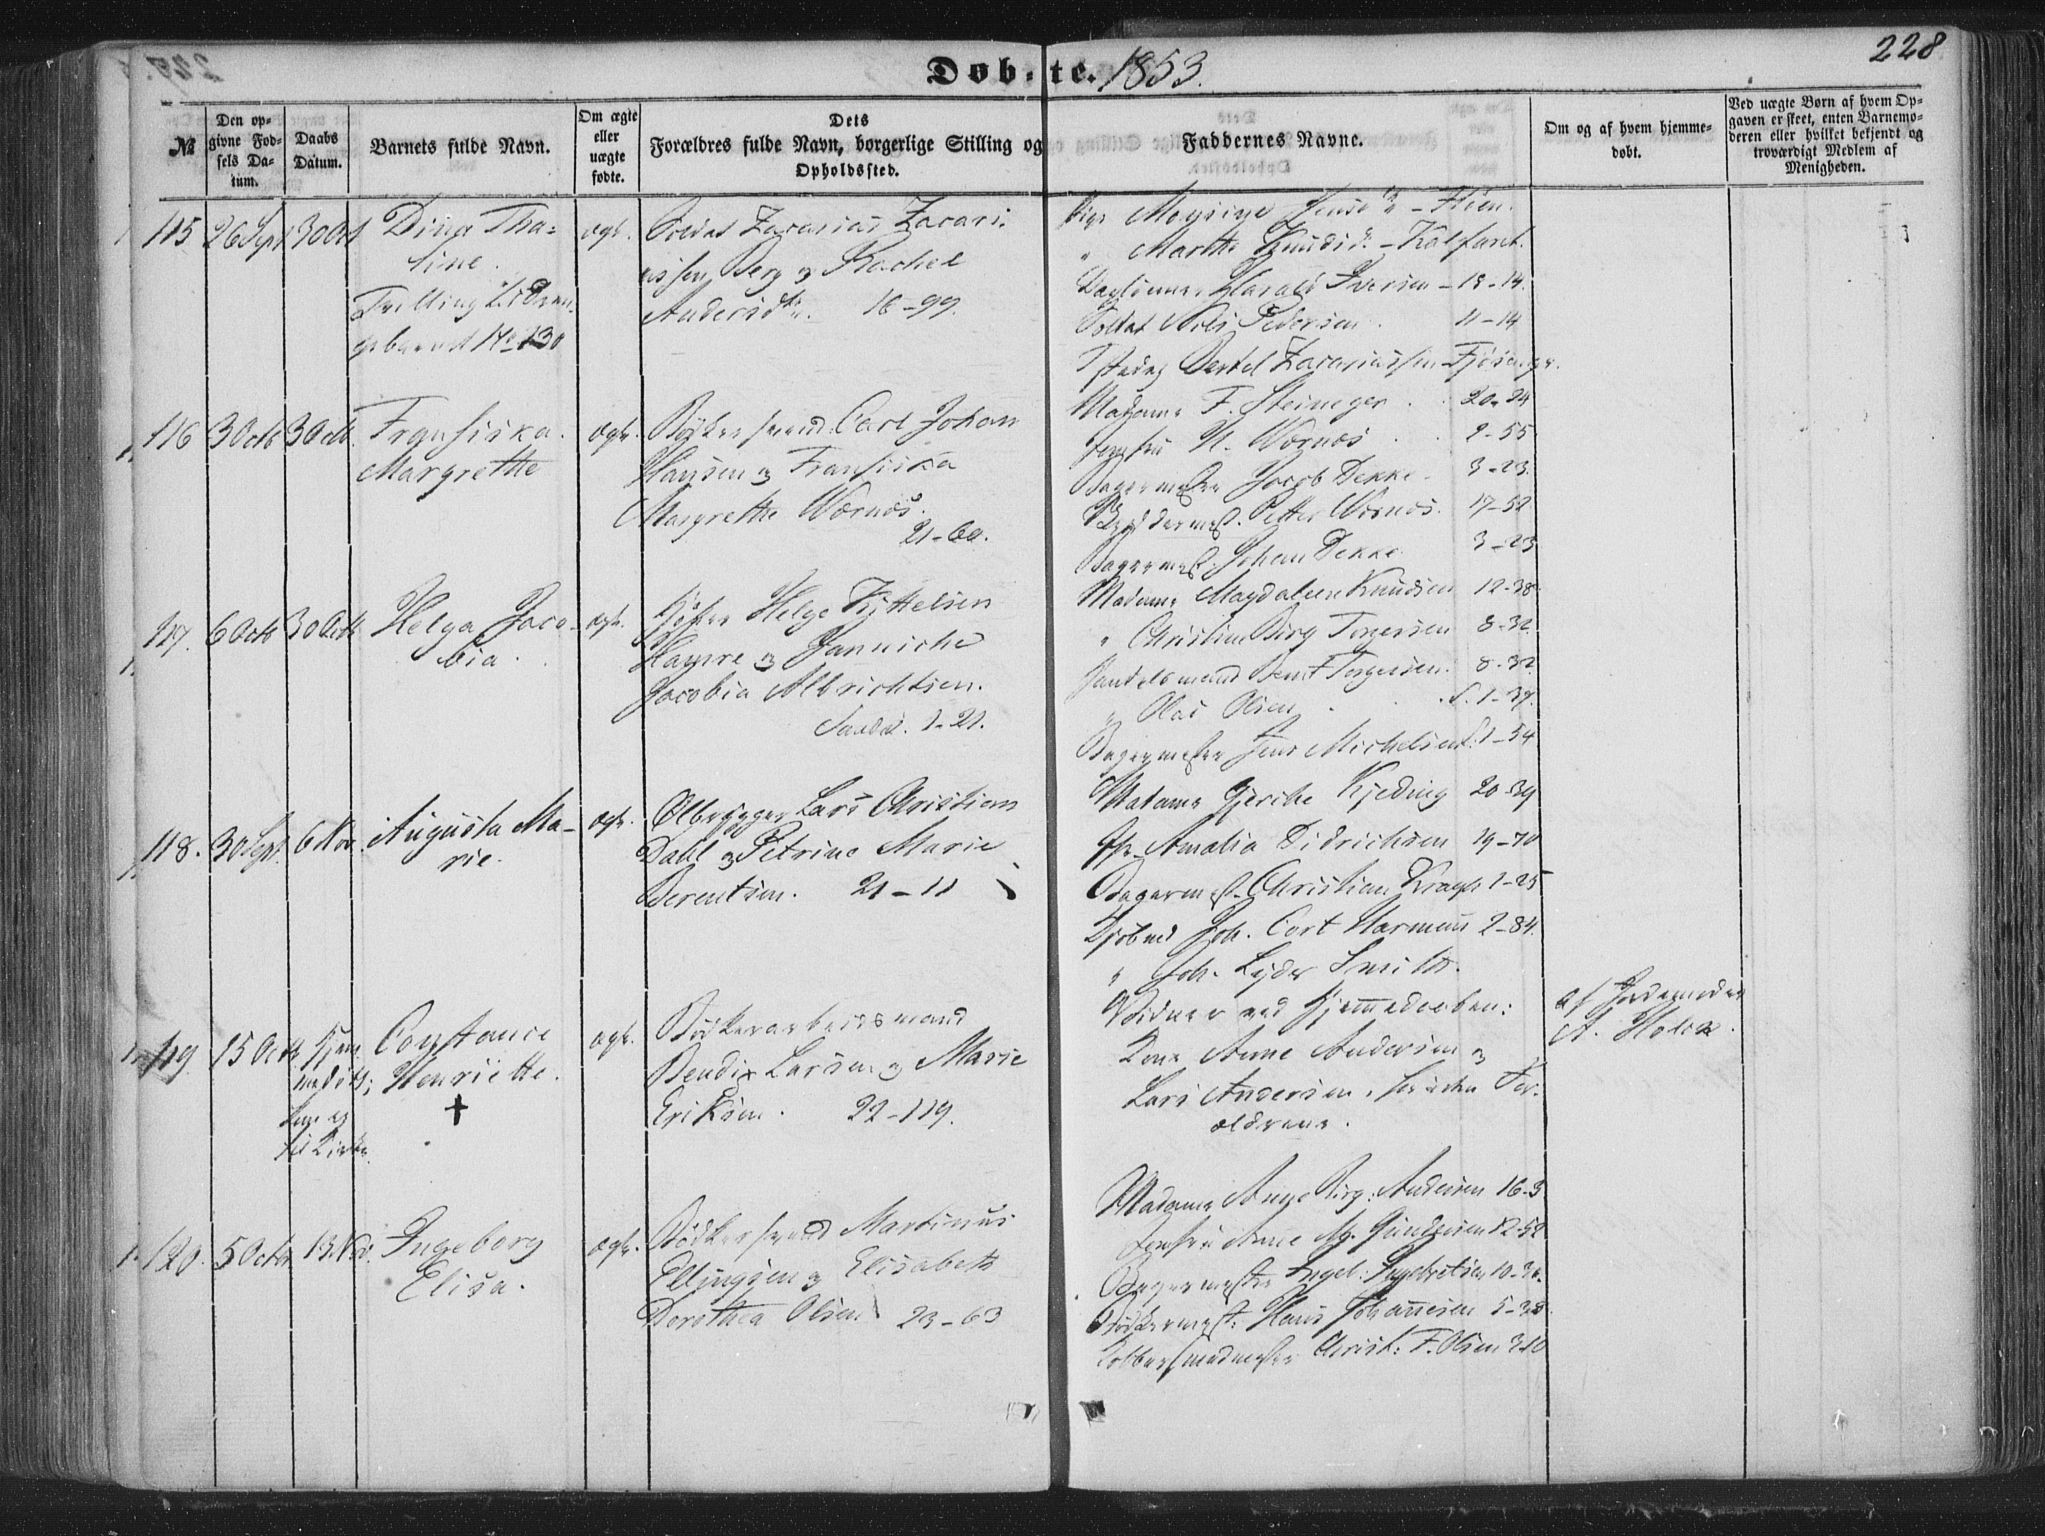 228
Døb-te. 1853.
№
Den op-
givne Fød-
sels Da-
tum.
Daabs
Datum.
Barnets fulde Navn.
Om ægte
eller
uægte
fødte.
Dets
Forældres fulde Navn, borgerlige Stilling og
Opholdssted.
Faddernes Navne.
Om og af hvem hjemme-
døbt.
Ved uægte Børn af hvem Op-
gaven er skeet, enten Barnemo-
deren eller hvilket bekjendt og
troværdigt Medlem af
Menigheden.
115 26 Sept 30 Oct Dina Tha-
line.
Tvilling
No 130
ægte.
Soldat Zacarias Zacari-
assen Berg og Rachel
Andersdtr. 16-99.
Marthe Knudsd. - Kalfaret.
Harald Iversen - 13-14.
Soldat Nils Pedersen. 11-14
Bertel Zacariassen
116 3 Octb 30 Octb. Fransiska
Margrethe
ægte.
Bødkersvend Carl Johan
Hansen og Fransiska
Margrethe Wernøs.
21-60.
Madame F. Steineger 20-24
Jomfru N. Wernøs 2-55
Bagermester Jacob Dekke. 3-23.
Petter Wernøs. 17-52
Bagermest. Johan Dekke 3-23
117. 6 Octb 30 Octb Helga Jaco-
bia.
ægte.
Helge Kittelsen
og Jannicke
Jacobia Albrichtsen.
Sandv. 1-21.
Madame Magdalene Knudsen 12-38
" Christine Berg Torgersen 8-32
Handelsmand Bent Torgersen. 8-32
" Olai Olsen S. 1-37.
Bagermester Jens Michelsen S. 1-54
118. 30 Sept. 6 Nov. Augusta Ma-
rie.
ægte.
Ølbrygger Lars Christian
Dahl og Petrine Marie
Berentsen. 21-11
Madame Gjerike Kjeding 20-39
Jfr. Amalia Didrichsen 19-70
Bagermest. Christian Krogh 1-25
Joh. Cort Harmens 2-84.
" Joh. Lyder Smith.
119. 15 Octb. Hjem-
medøbt;
til Kirke.
Constance
Henriette.
+
ægte.
Bødkerarbeidsmand
Bendix Larsen og Marie
Eriksen. 22-119.
Vidner ved Hjemmedaaben:
Kone Anne Andersen og
Lars Andersen, foruden For-
ældrene.
af Jordemoder
A. Holck.
120. 5 Octb 13 Nov. Ingeborg
Elisa.
ægte.
Bødkersvend Martinus
Ellingsen og Elisabeth
Dorothea Olsen 23-63
Madame Anne Birg. Andersen 16-3
Jomfru Anne Mg. Gundersen 12-52
Bagermester Engel. Ingebretsen 10-30.
Bødkermest: Hans Johannesen 5-38
Kobbersmedmester Christ: F. Olsen 3-10